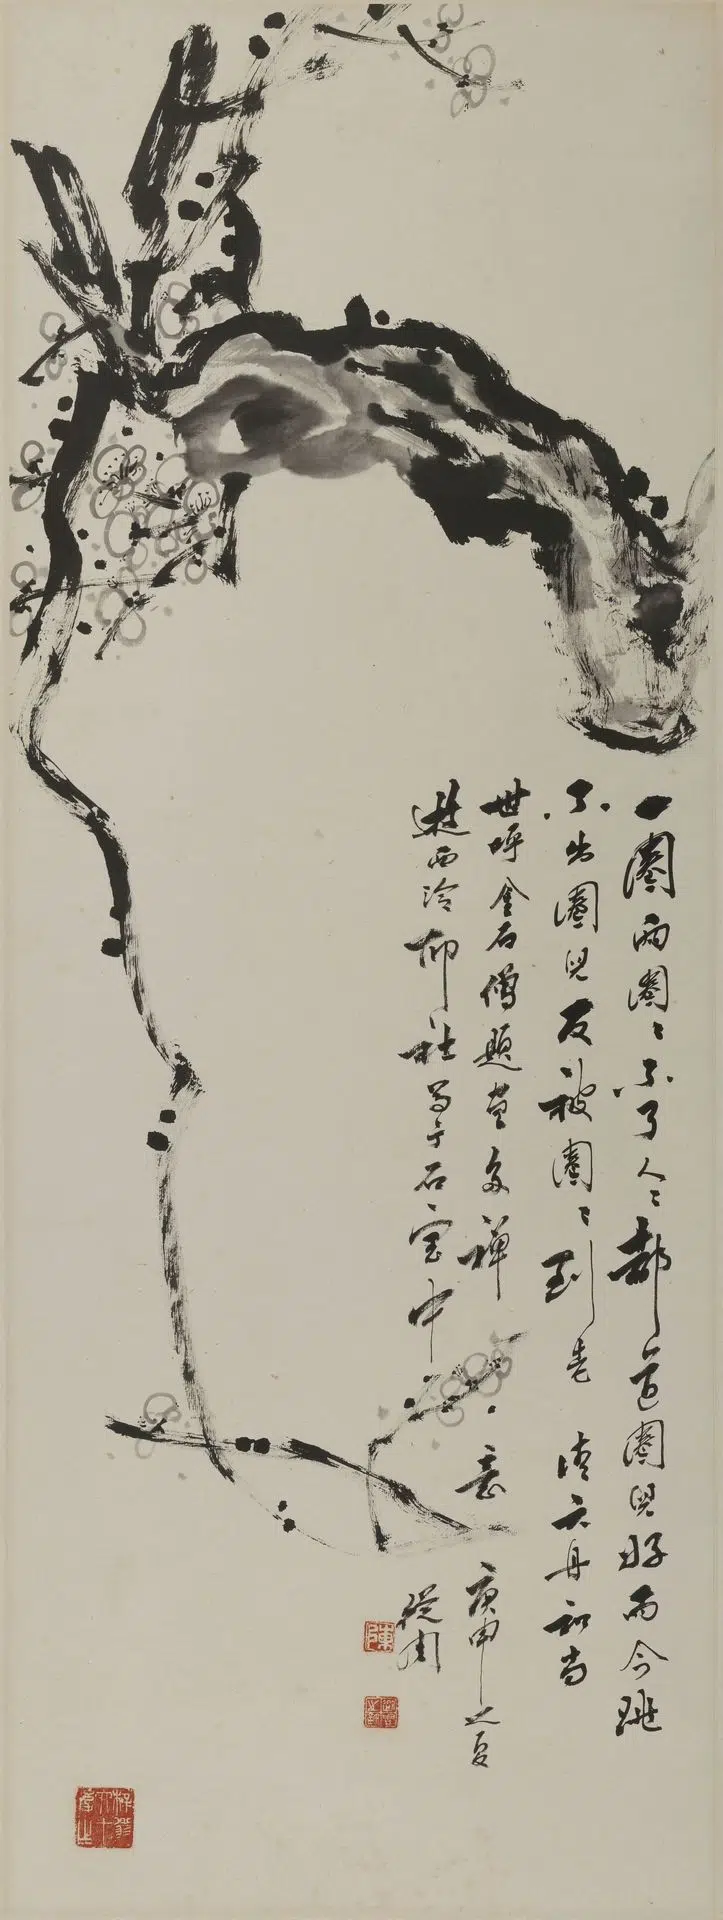 一圈兩圈〻不了人〻都道圈兒好而今跳
不出圈兒反被圈〻到老 清六舟和尚
世呼金石僧題畫多禪意 庚申之夏
遊西泠印社寫于石室中 從周
陳